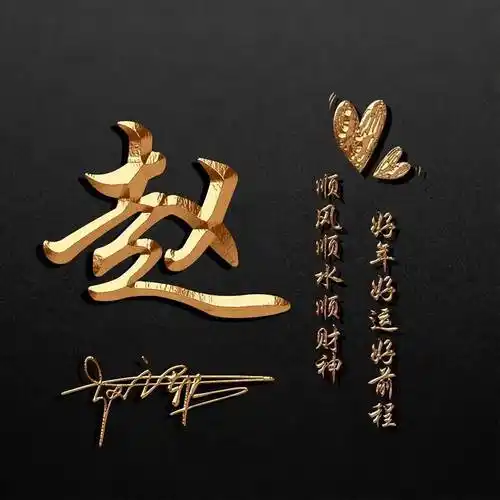 赵
顺风顺水顺财神
好年好运好前程